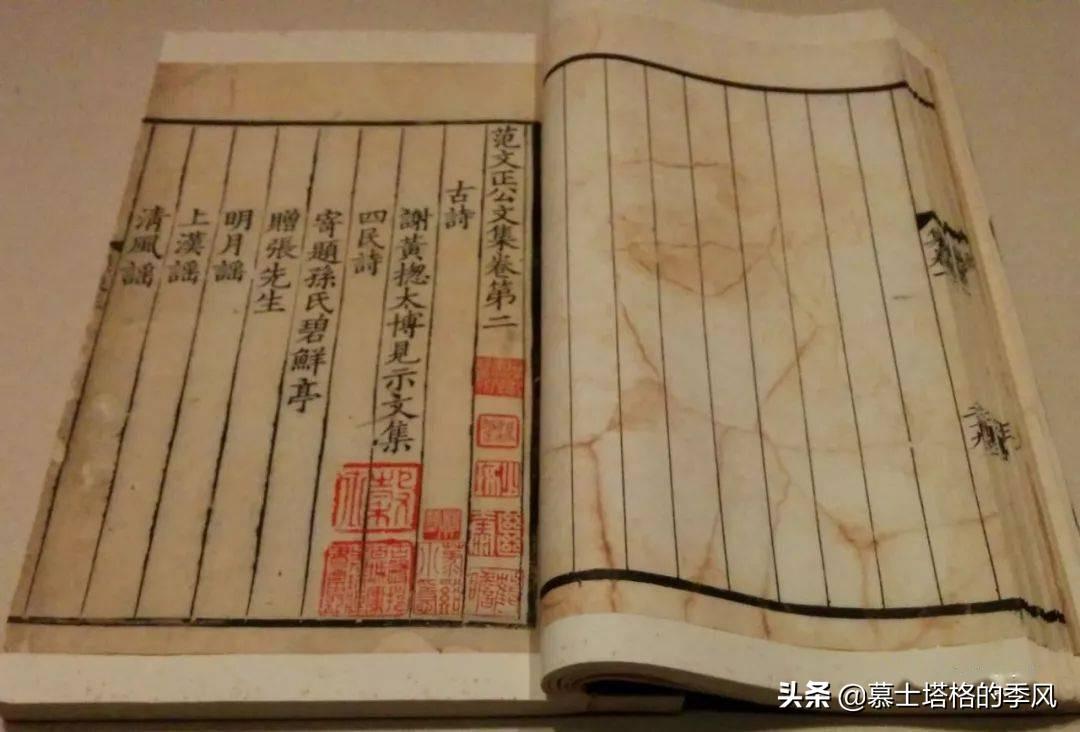 范文正公文集卷第二
古詩
謝黃揔太博見示文集
四民詩
寄題孫氏碧鮮亭
贈張先生
明月謡
上漢謡
清風謡
头条 @慕士塔格的季风